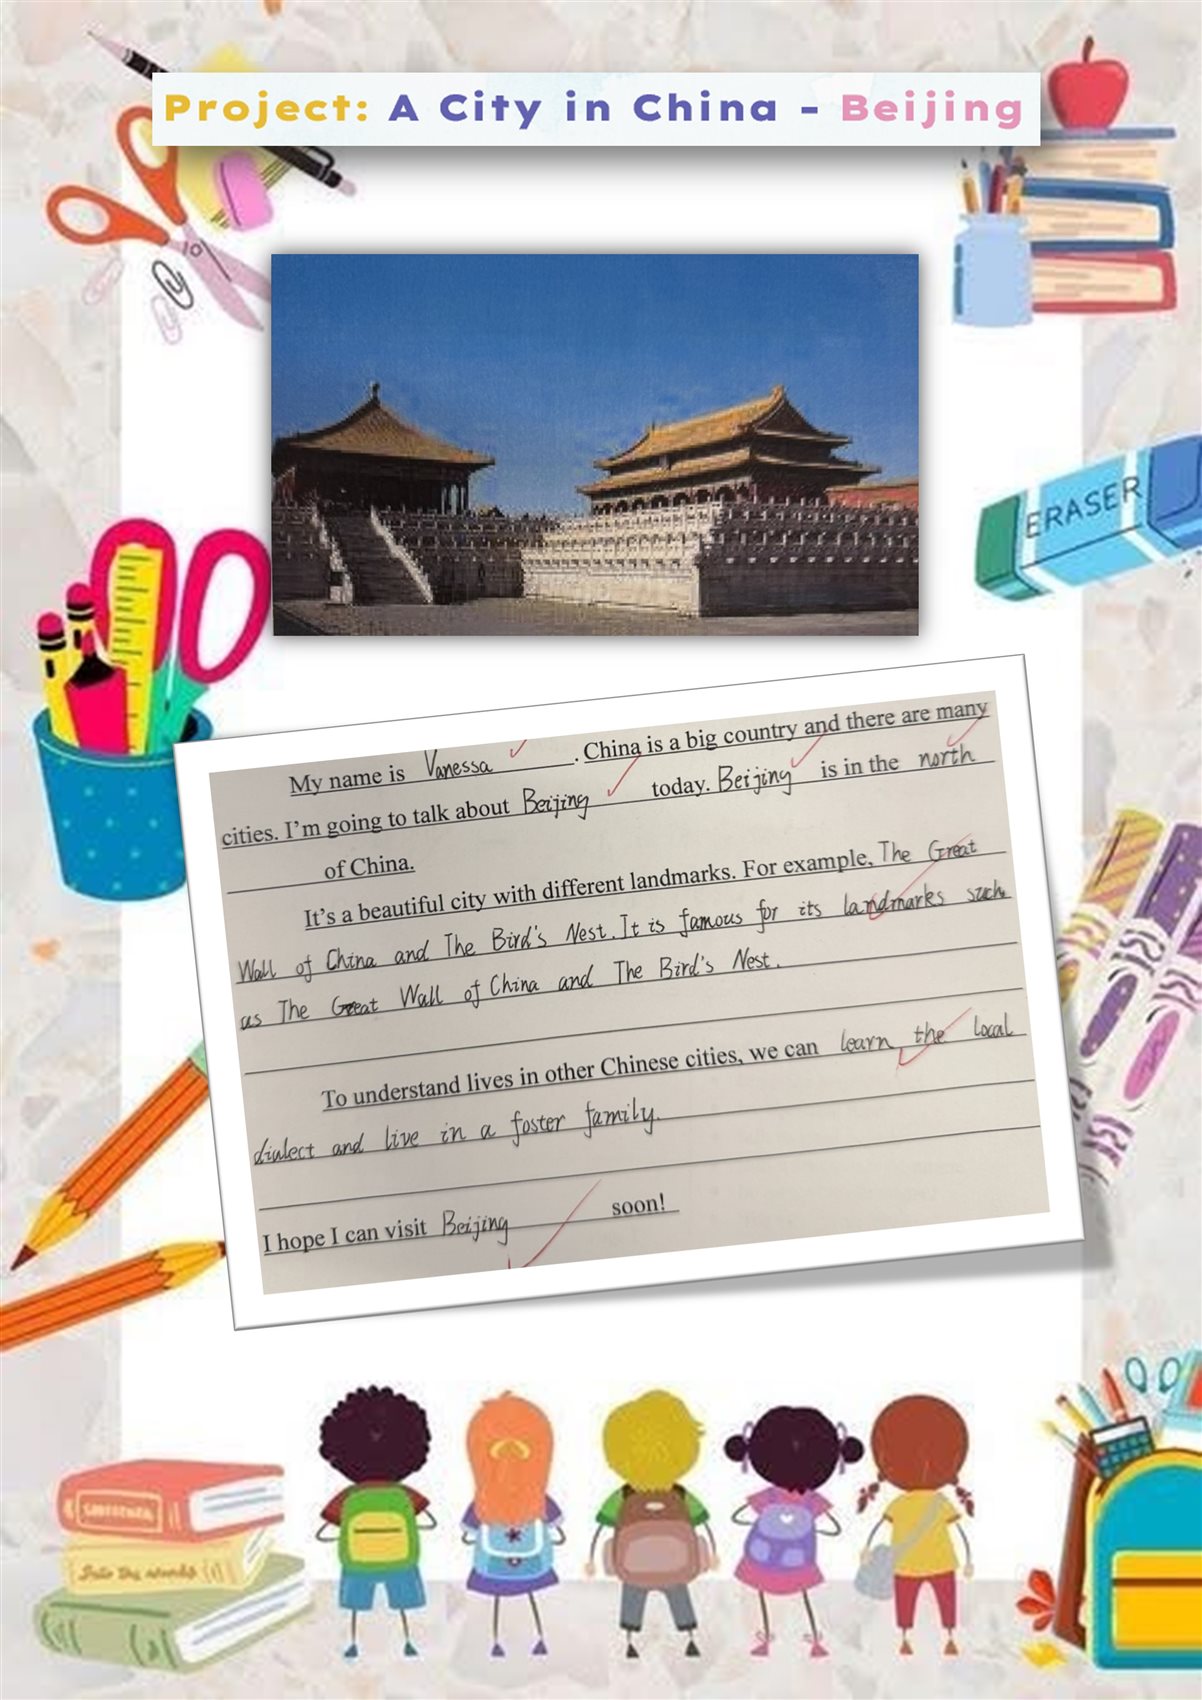 Project: A City in China - Beijing
ERASER
My name is Vanessa. China is a big country and there are many
cities. I'm going to talk about Beijing today. Beijing is in the north
of China.
It's a beautiful city with different landmarks. For example, The Great
Wall of China and The Bird's Nest. It is famous for its landmarks such
as The Great Wall of China and The Bird's Nest.
To understand lives in other Chinese cities, we can learn the local
dialect and live in a foster family.
I hope I can visit Beijing soon!